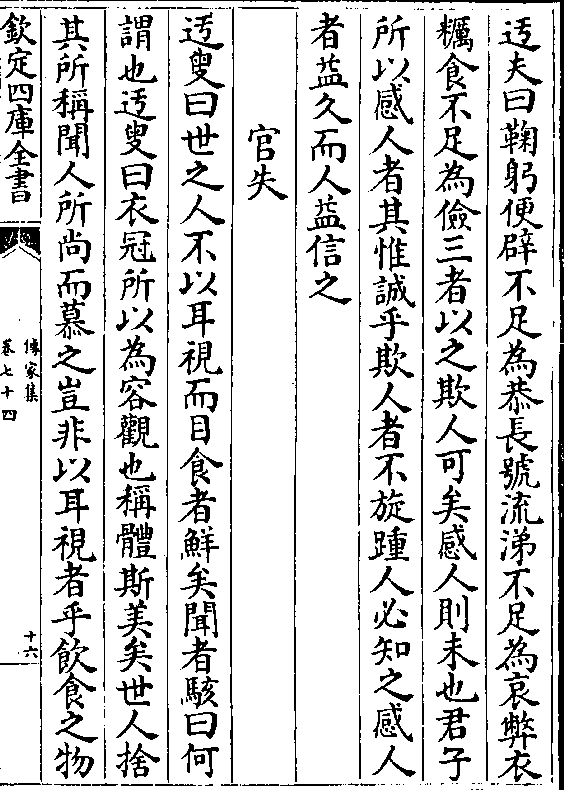 迃夫曰鞠躬便辟不足為恭長號流涕不足為哀弊衣
糲食不足為儉三者以之欺人可矣感人則未也君子
所以感人者其惟誠乎欺人者不旋踵人必知之感人
者益久而人益信之
官失
迃叟曰世之人不以耳視而目食者鮮矣聞者駭曰何
謂也迃叟曰衣冠所以為容觀也稱體斯美矣世人捨
其所稱聞人所尚而慕之豈非以耳視者乎飲食之物
欽定四庫全書
傳家集
卷七十四
十六